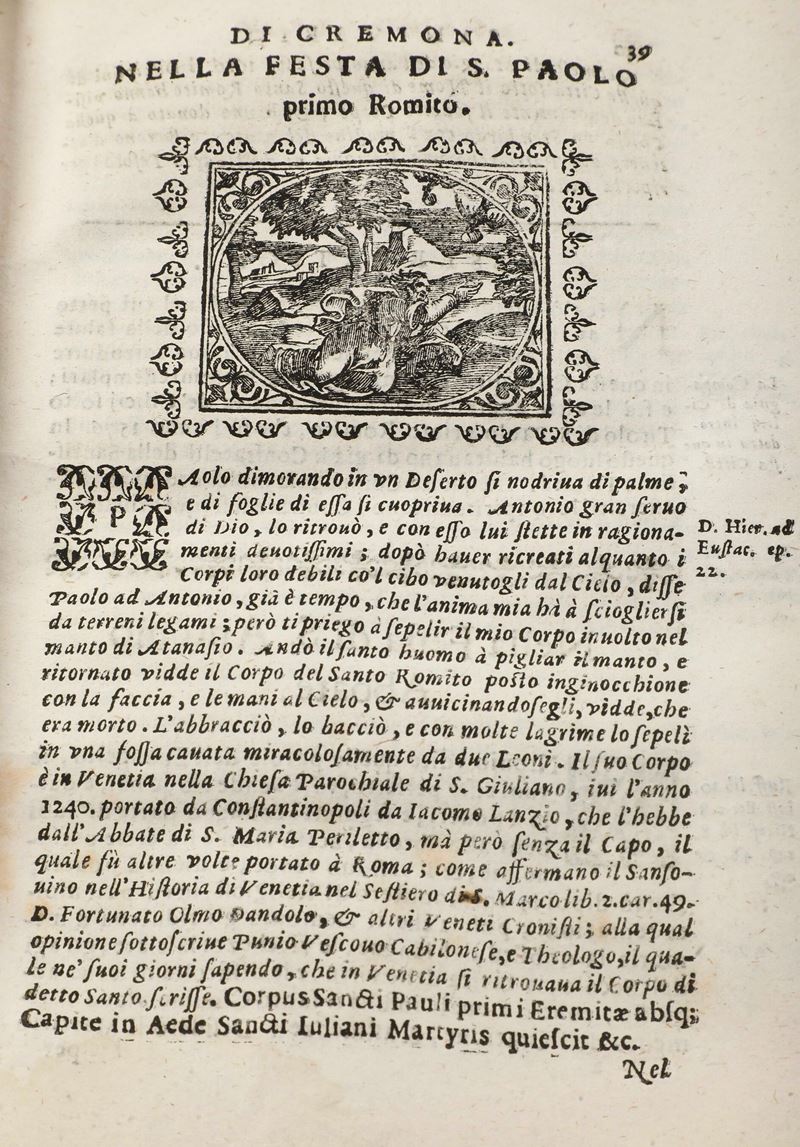 DI CREMONA.
39
NELLA FESTA DI S. PAOLO
primo Romito.
PAolo dimorando in vn Deserto si nodriua di palme;
e di foglie di essa si cuopriua. Antonio gran seruo
di Dio, lo ritrouò, e con esso lui stette in ragiona-
menti deuotissimi; dopò hauer ricreati alquanto i
Corpi loro debili co'l cibo venutogli dal Cielo, disse
Paolo ad Antonio, già è tempo, che l'anima mia hà à sciogliersi
da terreni legami; però ti priego à sepelir il mio Corpo inuolto nel
manto di Atanasio. Andò il santo huomo à pigliar il manto, e
ritornato vidde il Corpo del Santo Romito posto inginocchione
con la faccia, e le mani al Cielo, & auuicinandosegli, vidde, che
era morto. L'abbracciò, lo bacciò, e con molte lagrime lo sepelì
in vna fossa cauata miracolosamente da due Leoni. Il suo Corpo
è in Venetia nella Chiesa Parochiale di S. Giuliano, iui l'anno
1240. portato da Constantinopoli da Iacomo Lanzio, che l'hebbe
dall'Abbate di S. Maria Periletto, mà però senza il Capo, il
quale fù altre volte portato à Roma; come affermano il Sanso-
uino nell'Historia di Venetia nel Sestiero di S. Marco lib. 2. car. 49.
D. Fortunato Olmo Dandolo, & altri Veneti Cronisti; alla qual
opinione sottoscriue Punio Vescouo Cabilonese, e Theologo, il qua-
le ne' suoi giorni sapendo, che in Venetia si ritrouaua il Corpo di
detto Santo scrisse. Corpus Sancti Pauli primi Eremitæ absq;
Capite in Aede Sancti Iuliani Martyris quiescit &c.
Nel
D. Hier. ad
Eustac. ep.
22.